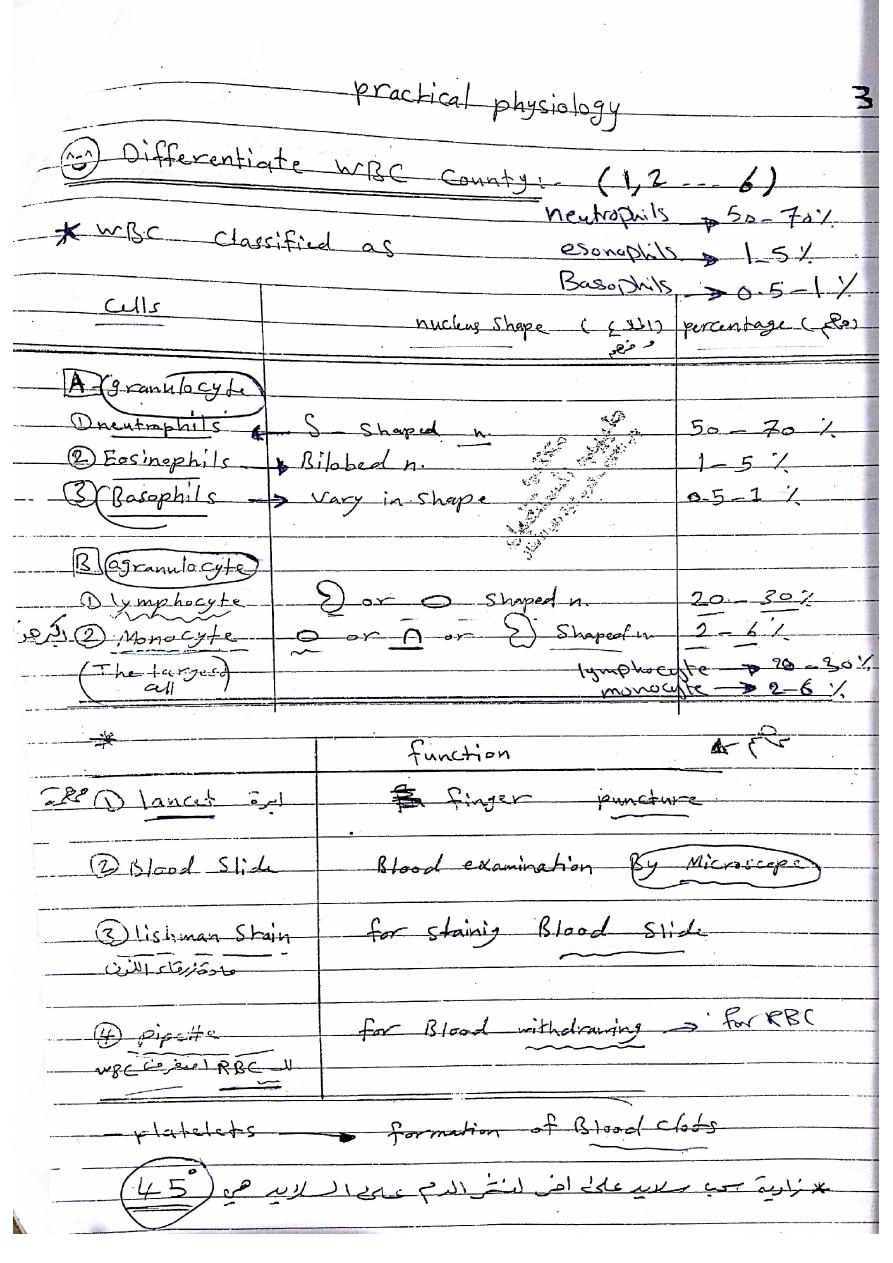 practical physiology 3
Differentiate WBC County:- (1,2 --- 6)
neutrophils → 50-70%
* WBC Classified as
esonophils → 1-5%
Basophils → 0.5-1%
Cells nucleus shape ( percentage (
A granulocyte
① neutrophils ← S - shaped n. 50 - 70 %
② Eosinophils → Bilobed n. 1 - 5 %
③ Basophils → vary in shape 0.5-1 %
B agranulocyte
① lymphocyte or shaped n. 20 - 30%
② Monocyte or or shaped n 2 - 6%
(The largest all) lymphocyte → 20-30%
monocyte → 2-6%
* function
① lancet ابرة finger puncture
② Blood Slide Blood examination By Microscope
③ lishman Stain for stainig Blood Slide
مادة زرقاء اللون
④ pipette for Blood withdrawing → for RBC
للـ RBC اصغر من WBC
- platelets → formation of Blood clots
* زاوية سحب سلايد على اخر لنشر الدم على السلايد هي 45°